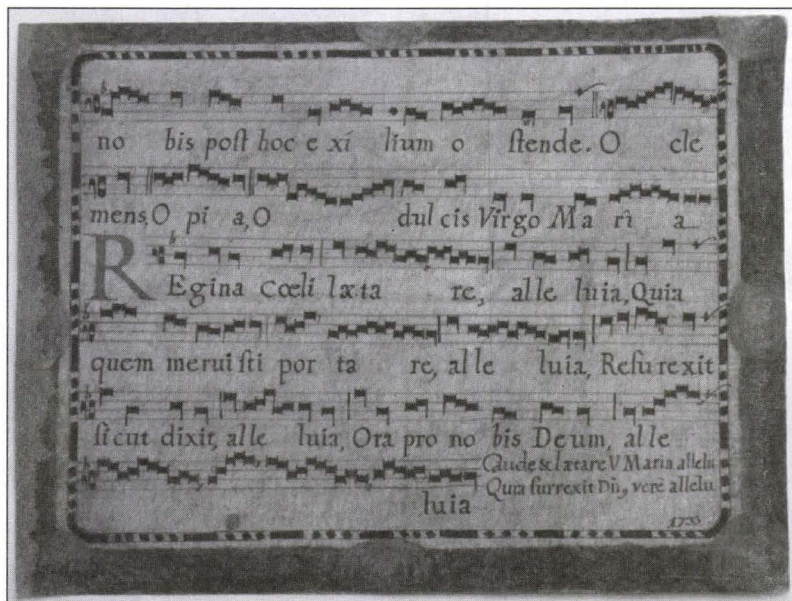 no bis post hoc e xi lium o stende. O cle
mens, O pi a, O dul cis Virgo Ma ri a
REgina Cœli læta re, al le luia, Quia
quem merui sti por ta re, al le luia, Resurexit
sicut dixit, al le luia, Ora pro no bis Deum, al le
Gaude & lætare V Maria allelu
Quia surrexit Dn̄s, verè allelu
luia